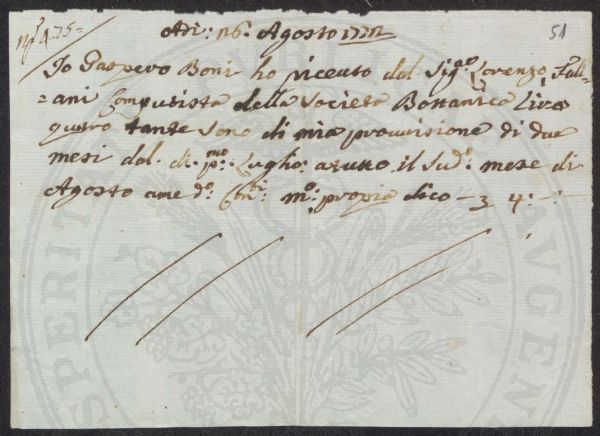 Adi: 16: Agosto 1772
51
Io Gaspero Boni ho riceuto dal Sig.re Lorenzo Full=
=ani Computista della Società Bottanica Lire
quatro tante sono di mia provvisione di due
mesi dal dì p.mo Luglio: a tutto il Sud.o mese di
Agosto a me d.o Con.ti: m.o propria dico — 3 4: —: